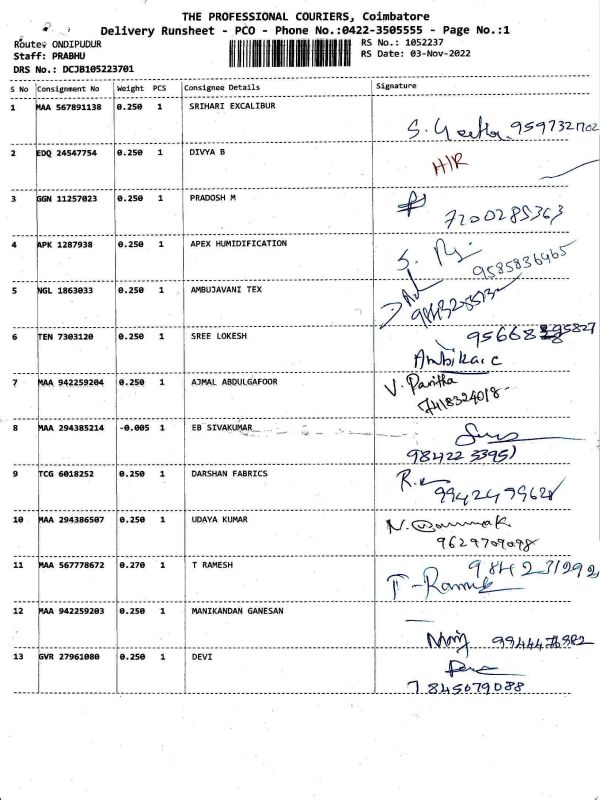 THE PROFESSIONAL COURIERS, Coimbatore
Delivery Runsheet - PCO - Phone No.:0422-3505555 - Page No.:1
Route: ONDIPUDUR
RS No.: 1052237
Staff: PRABHU
RS Date: 03-Nov-2022
DRS No.: DCJB105223701
S No Consignment No Weight PCS Consignee Details Signature
1 MAA 567891138 0.250 1 SRIHARI EXCALIBUR
S. Geetha 9597321702
2 EDQ 24547754 0.250 1 DIVYA B
H/R
3 GGN 11257023 0.250 1 PRADOSH M
7200285363
4 APK 1287938 0.250 1 APEX HUMIDIFICATION
9585836465
5 NGL 1863033 0.250 1 AMBUJAVANI TEX
6 TEN 7303120 0.250 1 SREE LOKESH
Ambika.c
7 MAA 942259204 0.250 1 AJMAL ABDULGAFOOR
V. Pavitha
7418324018
8 MAA 294385214 -0.005 1 EB SIVAKUMAR
9842233951
9 TCG 6018252 0.250 1 DARSHAN FABRICS
9942479628
10 MAA 294386507 0.250 1 UDAYA KUMAR
9629709098
11 MAA 567778672 0.270 1 T RAMESH
984231292
T-Ramesh
12 MAA 942259203 0.250 1 MANIKANDAN GANESAN
9944476982
13 GVR 27961080 0.250 1 DEVI
7845079088